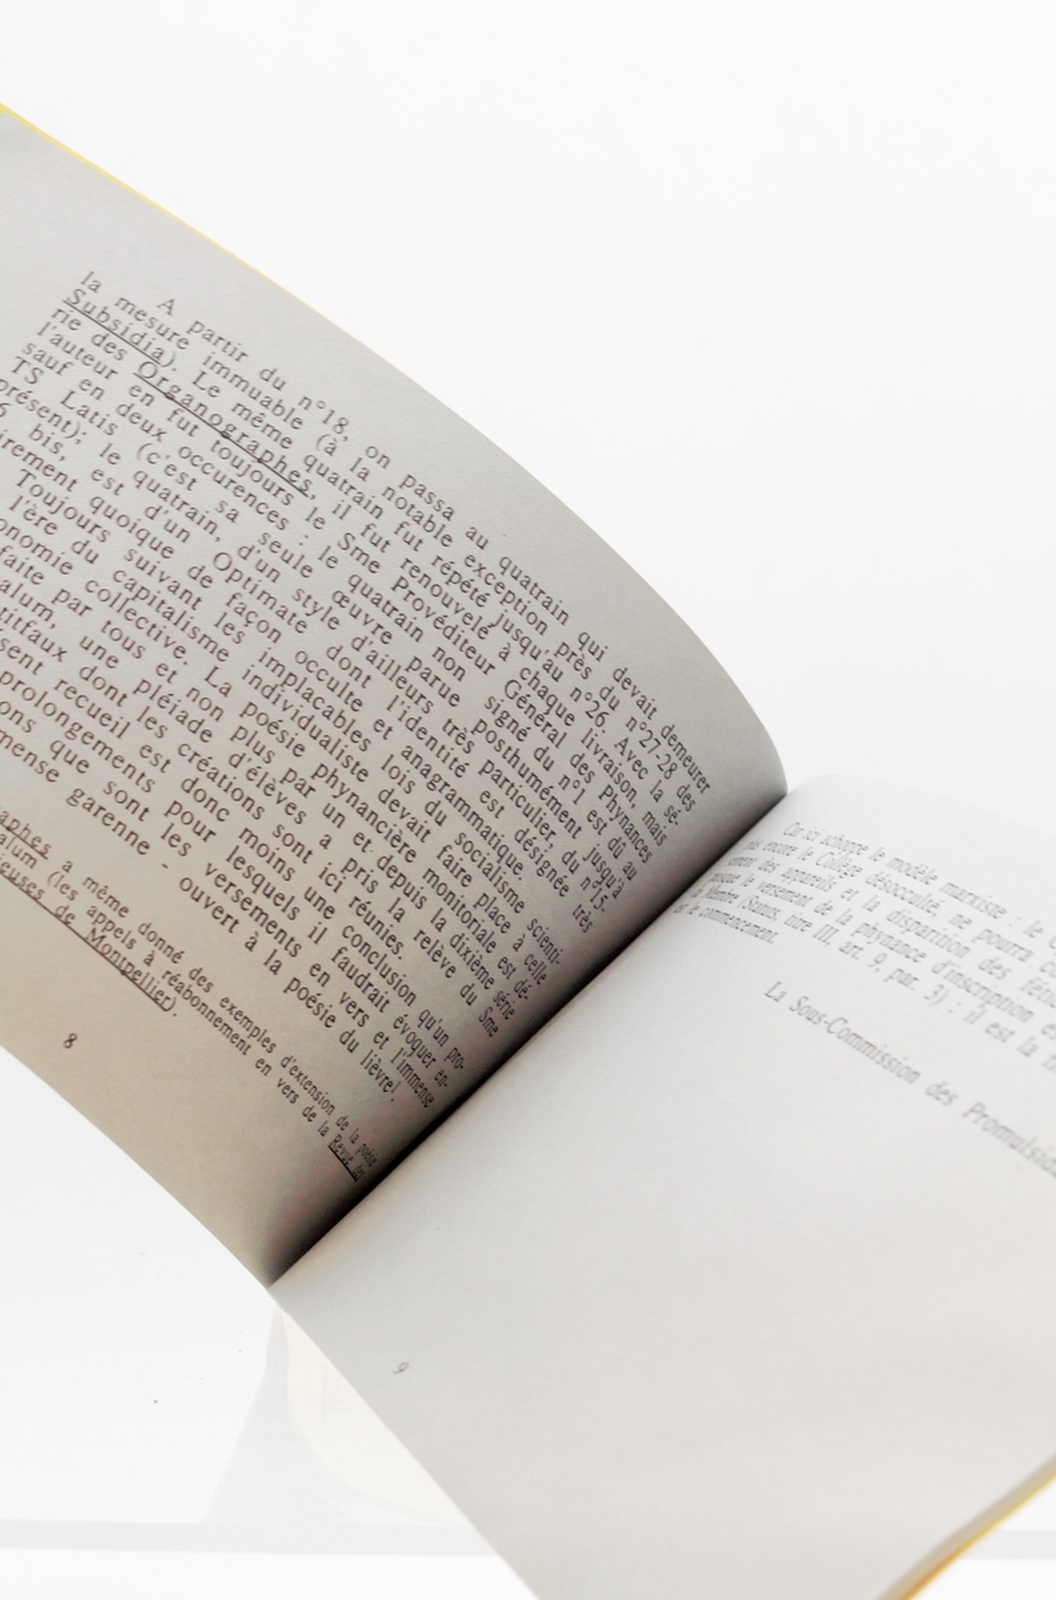 A partir du n°18, on passa au quatrain qui devait demeurer
la mesure immuable (à la notable exception près du n°27-28 des
Subsidia). Le même quatrain fut répété jusqu'au n°26. Avec la sé-
rie des Organographes, il fut renouvelé à chaque livraison, mais
l'auteur en fut toujours le Sme Provéditeur Général des Phynances
sauf en deux occurences : le quatrain non signé du n°1 est dû au
TS Latis (c'est sa seule œuvre parue posthumément jusqu'à
présent); le quatrain, d'un style d'ailleurs très particulier, du n°15-
6 bis, est d'un Optimate dont l'identité est désignée très
irement quoique de façon occulte et anagrammatique.
Toujours suivant les implacables lois du socialisme scienti-
l'ère du capitalisme individualiste devait faire place à celle
onomie collective. La poésie phynancière monitoriale est dé-
faite par tous et non plus par un et depuis la dixième série
alum, une pléiade d'élèves a pris la relève du Sme
titfaux dont les créations sont ici réunies.
sent recueil est donc moins une conclusion qu'un pro-
prolongements pour lesquels il faudrait évoquer en-
ons que sont les versements en vers et l'immense
mense garenne - ouvert à la poésie du lièvre!
aphes a même donné des exemples d'extension de la poésie
alum (les appels à réabonnement en vers de la Revue des
ieuses de Montpellier).
8
Car ici achoppe le modèle marxiste : le
encore le Collège désocculté, ne pourra
des appareils et la disparition des
le versement de la phynance d'inscription
Membre (Statuts, titre III, art. 9, par. 3) : il est la
et le commencement.
La Sous-Commission des
9